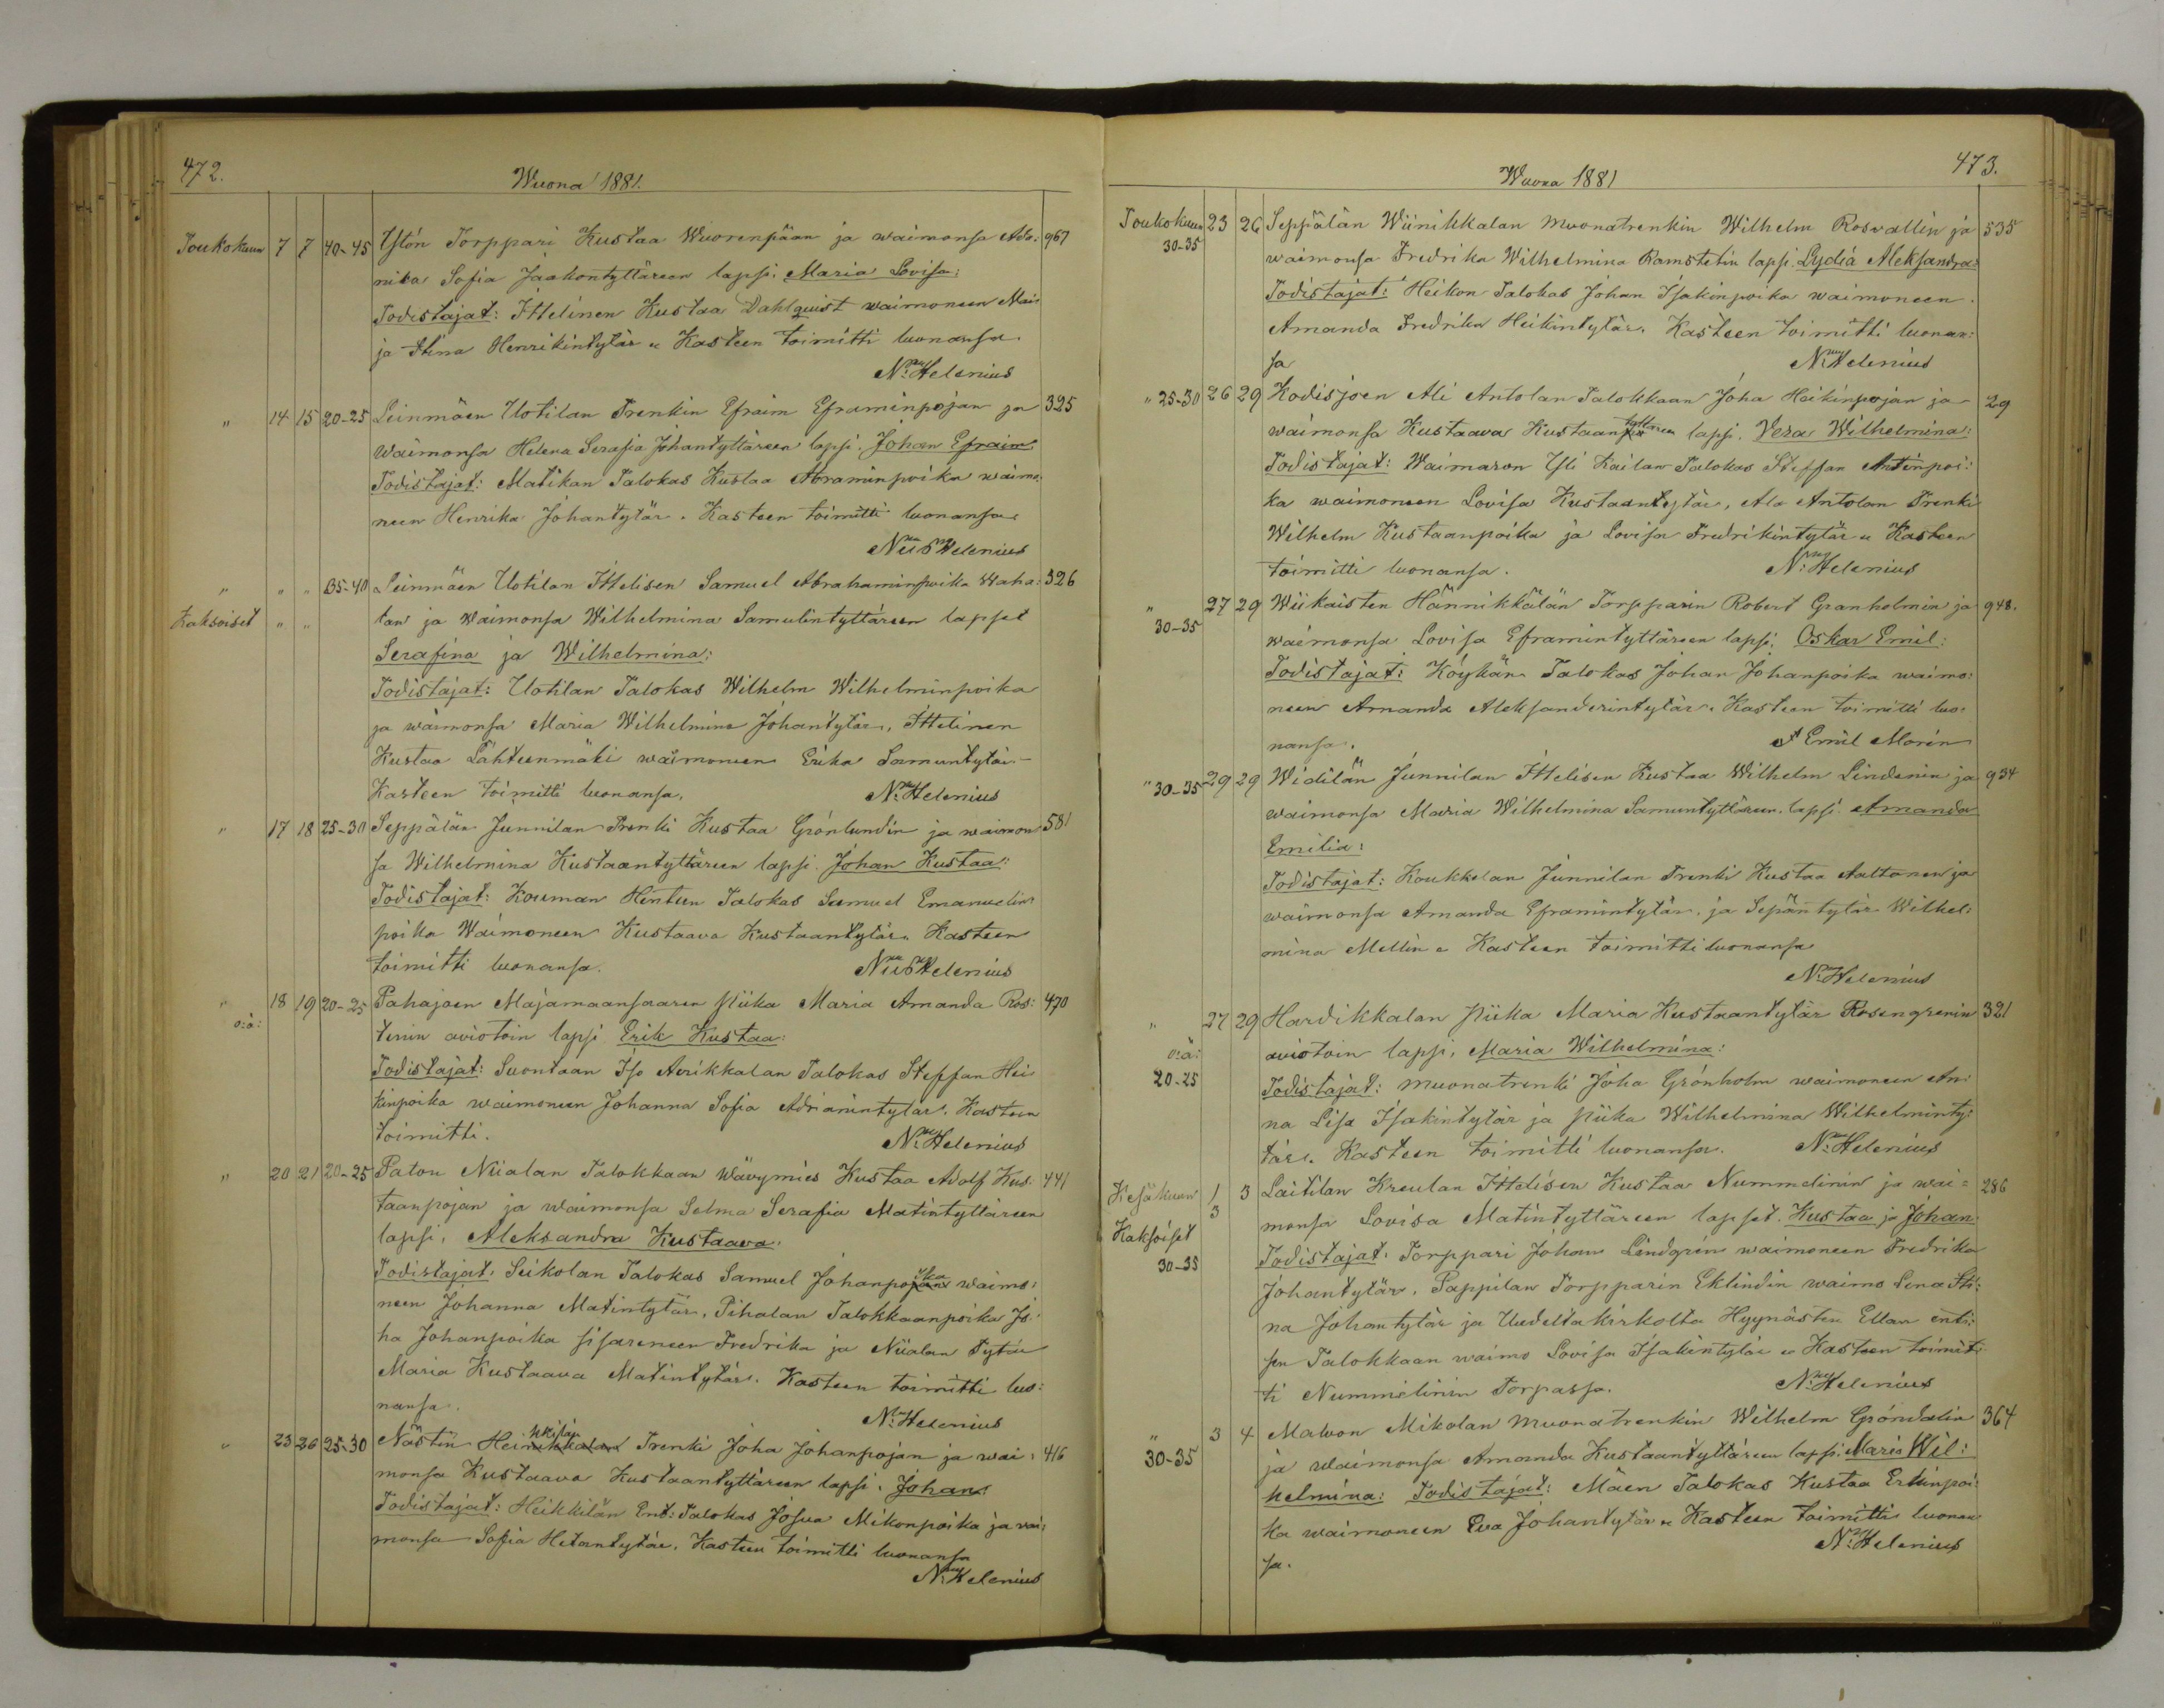 472.
Wuona 1881.
Toukokuun 7 7 40-45 Ylön Torppari Kustaa Wuorenpään ja waimonsa Ado: 967
nika Sofia Jaakontyttäreen lapsi. Maria Lovisa:
Todistajat: Ittelinen Kustaa Dahlquist waimoneen Mai
ja Stina Henrikintytär. Kasteen toimitti luonansa.
N: Helenius
" 14 15 20-25 Leinmäen Uotilan Trenkin Efraim Eframinpojan ja 325
waimonsa Helena Serafia Johantyttäreen lapsi. Johan Efraim
Todistajat: Matikan Talokas Kustaa Abraminpoika waimo:
neen Henrika Johantytär. Kasteen toimitti luonansa
Helenius
" " " 35-40 Leinmäen Uotilan Ittelisen Samuel Abrahaminpoika Waha: 326
Kaksoiset " " tan ja waimonsa Wilhelmina Samulintyttäreen lapset
Serafina ja Wilhelmina:
Todistajat: Uotilan Talokas Wilhelm Wilhelminpoika
ja waimonsa Maria Wilhelmina Johantytär, Ittelinen
Kustaa Lähteenmäki waimoneen Erika Samuntytär.
Kasteen toimitti luonansa. N: Helenius
" 17 18 25-30 Seppälän Junnilan Trenki Kustaa Grönlundin ja waimon 581
sa Wilhelmina Kustaantyttäreen lapsi. Johan Kustaa:
Todistajat: Kouman Hentun Talokas Samuel Emanuelin
poika Waimoneen Kustaava Kustaantytär. Kasteen
toimitti luonansa. Helenius
" 18 19 20-25 Pahajoen Majamaansaaren piika Maria Amanda Ros: 470
o:ä: tenin aviotoin lapsi Erik Kustaa:
Todistajat: Suontaan Iso Aerikkalan Talokas Steffan Hei
kinpoika waimoneen Johanna Sofia Adrianintytär. Kasteen
toimitti. N: Helenius
" 20 21 20-25 Paton Niialan Talokkaan Wävymies Kustaa Adolf Kus: 441
taanpojan ja waimonsa Selma Serafia Matintyttäreen
lapsi. Aleksandra Kustaava.
Todistajat. Seikolan Talokas Samuel Johanpoika waimo:
neen Johanna Matintytär, Pihalan Talokkaanpoika Jo:
ha Johanpoika sisareneen Fredrika ja Niialan Tytär
Maria Kustaava Matintytär. Kasteen toimitti luo:
nansa. N: Helenius
" 23 26 25-30 Nästin Trenki Joha Johanpojan ja wai: 416
monsa Kustaava Kustaantyttäreen lapsi. Johan:
Todistajat: Heikkilän Ent: Talokas Josua Mikonpoika ja wai:
monsa Sofia Hetantytär. Kasteen toimitti luonansa
N: Helenius
473.
Wuona 1881
Toukokuun 23 26 Seppälän Wiinikkalan muonatrenkin Wilhelm Roswallin ja 535
30-35 waimonsa Fredrika Wilhelmina Ramstetin lapsi. Lydia Aleksandra:
Todistajat: Heikon Talokas Johan Isakinpoika waimoneen
Amanda Fredrika Heikintytär. Kasteen toimitti luonan:
sa N: Helenius
" 25-30 26 29 Kodisjoen Ali Antolan Talokkaan Joha Heikinpojan ja 29
waimonsa Kustaava Kustaantyttären lapsi. Vera Wilhelmina:
Todistajat: Waimaron Yli Kailan Talokas Steffan Antinpoi:
ka waimoneen Lovisa Kustaantytär, Ala Antolan Trenki
Wilhelm Kustaanpoika ja Lovisa Fredrikintytär. Kasteen
toimitti luonansa. N: Helenius
" 27 29 Wiikaisten Hännikkälän Torpparin Robert Granholmin ja 948.
30-35 waimonsa Lovisa Eframintyttäreen lapsi. Oskar Emil:
Todistajat: Köykän Talokas Johan Johanpoika waimo:
neen Amanda Aleksanderintytär. Kasteen toimitti luo:
nansa. A Emil Morén
" 30-35 29 29 Widilän Junnilan Ittelisen Kustaa Wilhelm Lindenin ja 934
waimonsa Maria Wilhelmina Samuntyttäreen lapsi. Amanda
Emilia:
Todistajat: Koukkelan Junnilan Trenki Kustaa Aaltonen ja
waimonsa Amanda Eframintytär, ja Sepäntytär Wilhel:
mina Mellin. Kasteen toimitti luonansa
N: Helenius
" 27 29 Hardikkalan piika Maria Kustaantytär Rosengrenin 321
o:ä: aviotoin lapsi, Maria Wilhelmina:
20-25 Todistajat: muonatrenki Joha Grönholm waimoneen An:
na Lisa Isakintytär ja piika Wilhelmina Wilhelminty:
tär. Kasteen toimitti luonansa. N: Helenius
Kesäkuun 1 3 Laitilan Kreulan Ittelisen Kustaa Nummelinin ja wai= 286
Kaksoiset 3 monsa Lovisa Matintyttäreen lapset. Kustaa ja Johan:
30-35 Todistajat. Torppari Johan Lindgrén waimoneen Fredrika
Johantytär. Sappilan Torpparin Eklundin waimo Lena Sti:
na Johantytär ja Uudeltakirkolta Hyynästen Ellan enti:
sen Talokkaan waimo Lovisa Isakintytär. Kasteen toimit:
ti Nummelinin Torpassa. N: Helenius
" 3 4 Malvon Mikolan muonatrenkin Wilhelm Gröndalin 364
30-35 ja waimonsa Amanda Kustaantyttäreen lapsi. Maria Wil:
helmina: Todistajat: Mäen Talokas Kustaa Erkinpoi:
ka waimoneen Eva Johantytär. Kasteen toimitti luonan
sa. N: Helenius